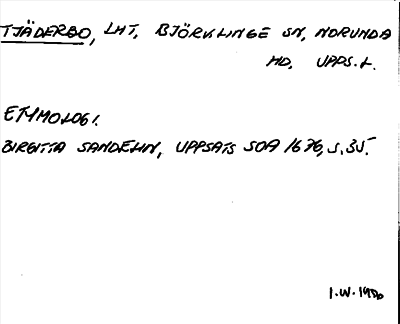 TJÄDERBO, LHT, BJÖRKLINGE SN, NORUNDA
HD, UPPS. L.
ETYMOLOGI.
BIRGITTA SANDELIN, UPPSATS SOA 1676, S. 35.
I.W. 1986